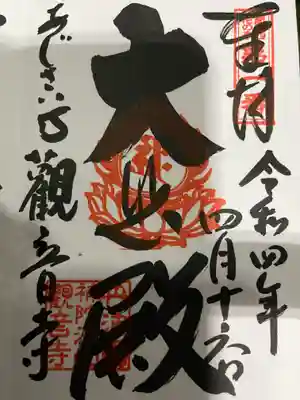 奉拝
令和四年
四月十六日
大悲殿
あじさい寺
觀音寺
觀音寺